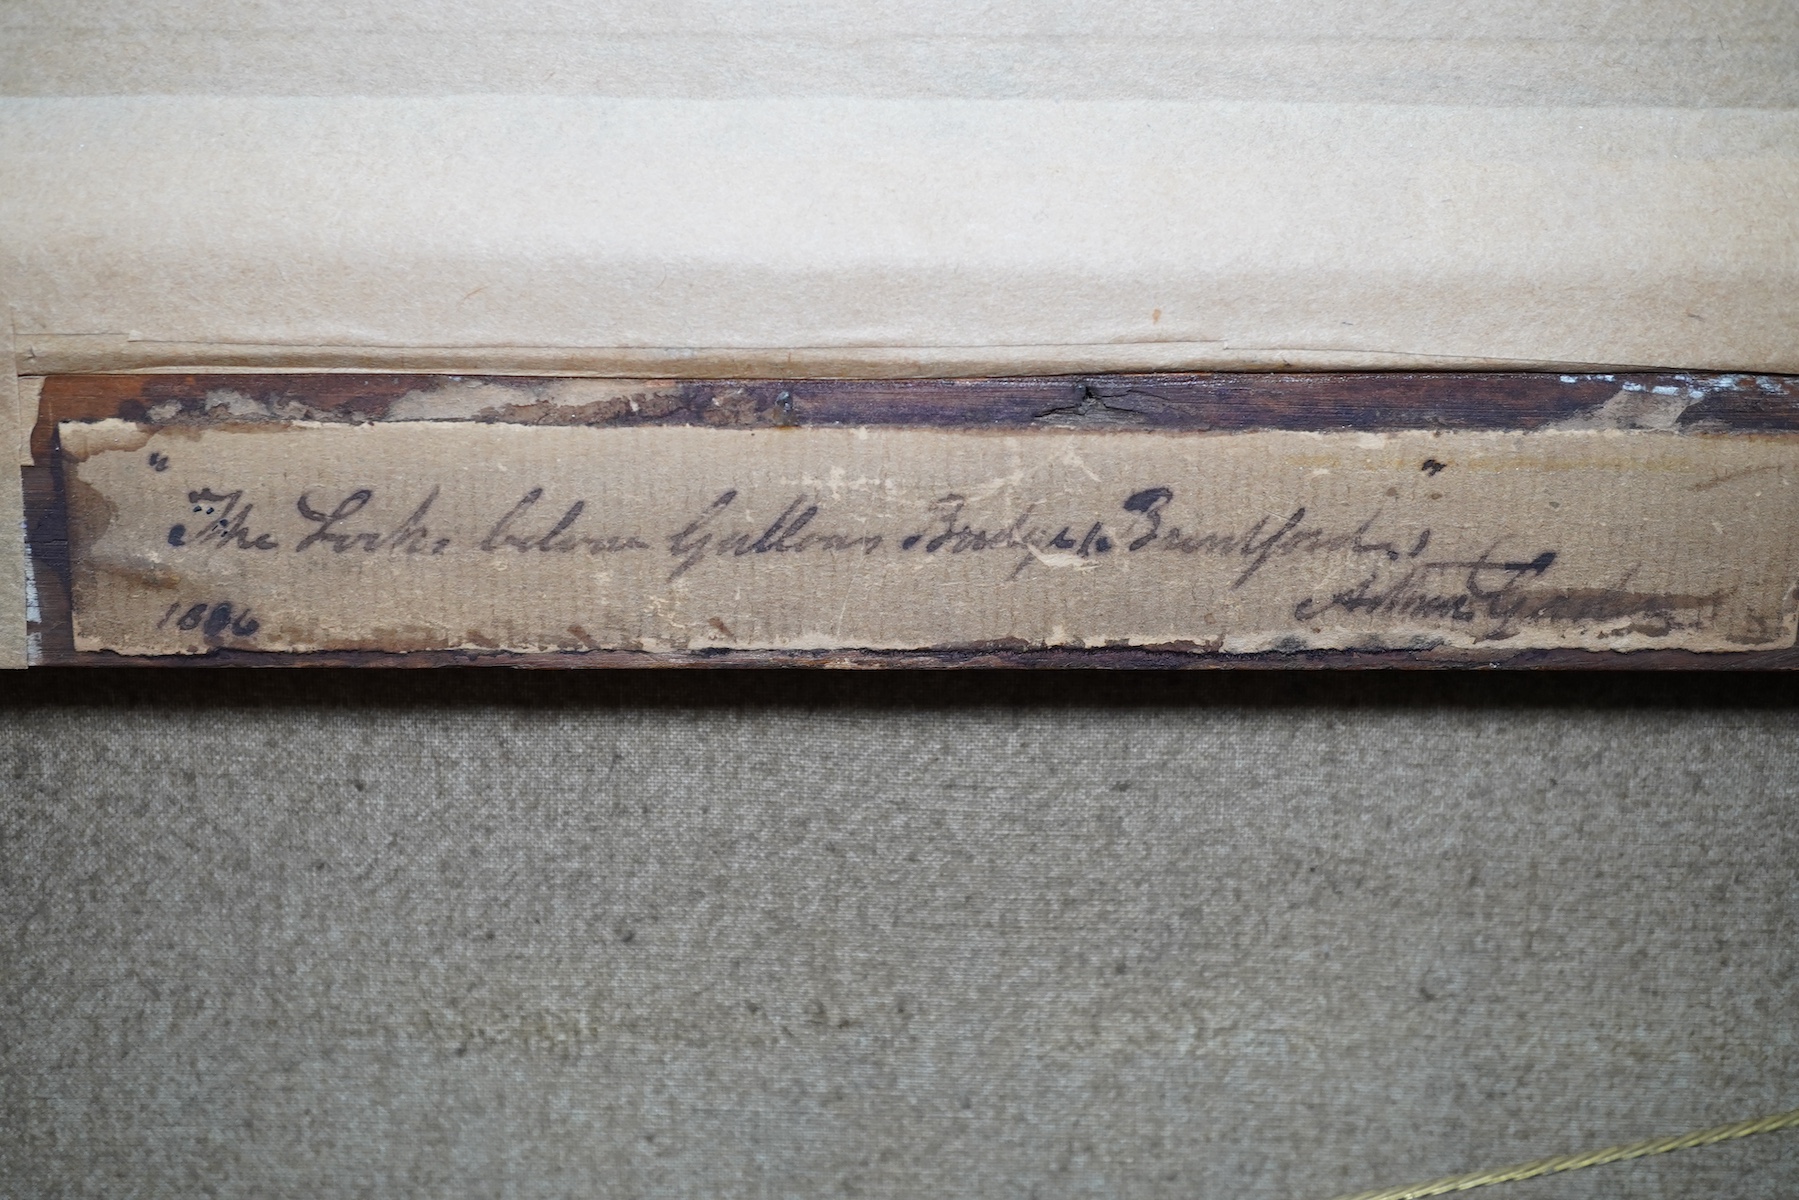 "The Locks below Gallows Bridge, Brentford."
Arthur
1886